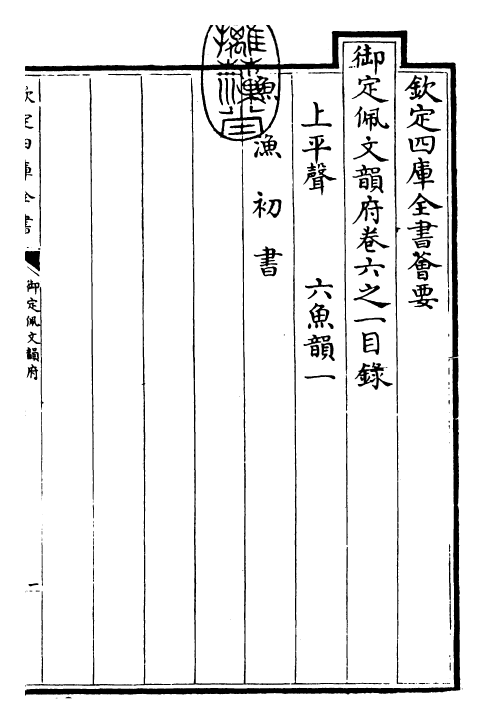 欽定四庫全書薈要
御定佩文韻府卷六之一目錄
上平聲　六魚韻一
魚漁初書
欽定四庫全書
御定佩文韻府
一